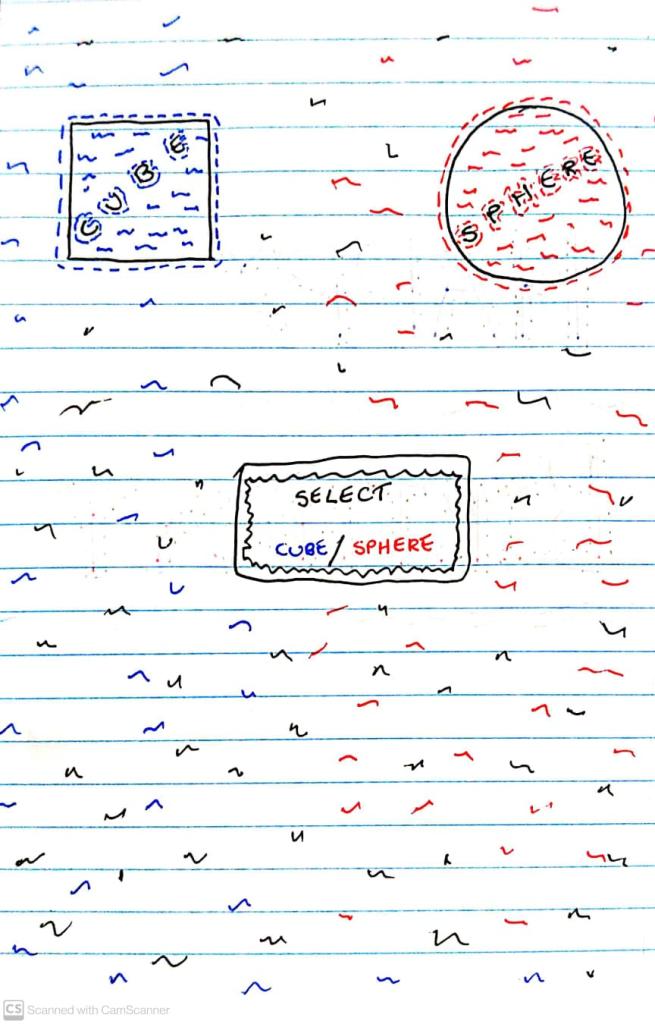 CUBE
SPHERE
SELECT
CUBE/SPHERE
CS Scanned with CamScanner